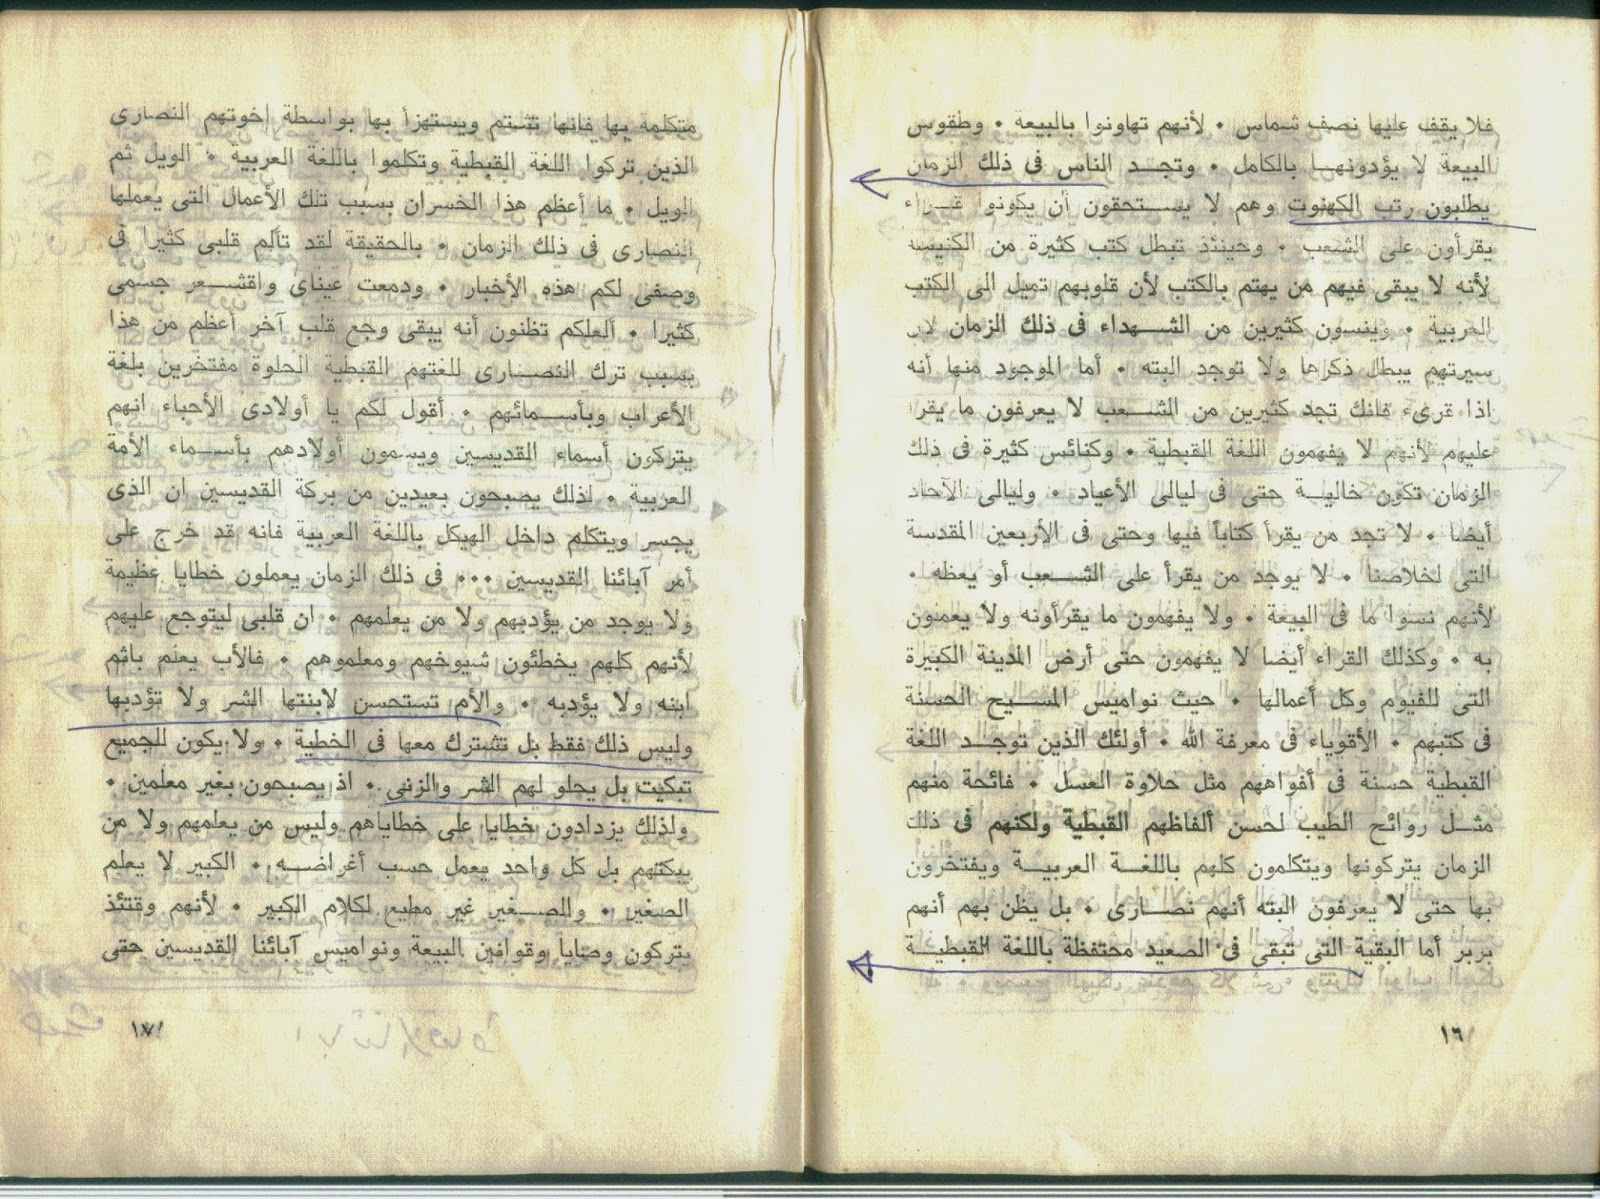 فلا يقف عليها نصف شماس • لأنهم تهاونوا بالبيعة • وطقوس
البيعة لا يؤدونهـا بالكامل • وتجـد الناس فى ذلك الزمان
يطلبون رتب الكهنوت وهم لا يسـتحقون أن يكونوا قـراء
يقرأون على الشعب • وحينئذ تبطل كتب كثيرة من الكنيسة
لأنه لا يبقى فيهم من يهتم بالكتب لأن قلوبهم تميل الى الكتب
العربية • وينسون كثيرين من الشـهداء فى ذلك الزمان لأن
سيرتهم يبطل ذكراها ولا توجد البته • أما الموجود منها أنه
اذا قرىء فانك تجد كثيرين من الشـعب لا يعرفون ما يقرأ
عليهم لأنهم لا يفهمون اللغة القبطية • وكنائس كثيرة فى ذلك
الزمان تكون خاليـة حتى فى ليالى الأعياد • وليالى الآحاد
أيضا • لا تجد من يقرأ كتاباً فيها وحتى فى الأربعين المقدسة
التى لخلاصنا • لا يوجد من يقرأ على الشـعب أو يعظه •
لأنهم نسوا ما فى البيعة • ولا يفهمون ما يقرأونه ولا يعملون
به • وكذلك القراء أيضا لا يفهمون حتى أرض المدينة الكبيرة
التى للفيوم وكل أعمالها • حيث نواميس المسـيح الحسنة
فى كتبهم • الأقوياء فى معرفة الله • أولئك الذين توجـد اللغة
القبطية حسنة فى أفواههم مثل حلاوة العسل • فائحة منهم
مثـل روائح الطيب لحسن ألفاظهم القبطية ولكنهم فى ذلك
الزمان يتركونها ويتكلمون كلهم باللغـة العربيـة ويفتخرون
بها حتى لا يعرفون البته أنهم نصـارى • بل يظن بهم أنهم
بربر أما البقية التى تبقى فى الصعيد محتفظة باللغة القبطيـة
١٦
متكلمة بها فانها تشتم ويستهزأ بها بواسطة اخوتهم النصارى
الذين تركوا اللغة القبطية وتكلموا باللغة العربية • الويل ثم
الويل • ما أعظم هذا الخسران بسبب تلك الأعمال التى يعملها
النصارى فى ذلك الزمان • بالحقيقة لقد تألم قلبى كثيرا فى
وصفى لكم هذه الأخبار • ودمعت عيناى واقشـعر جسمى
كثيرا • ألعلكم تظنون أنه يبقى وجع قلب آخر أعظم من هذا
بسبب ترك النصـارى للغتهم القبطية الحلوة مفتخرين بلغة
الأعراب وبأسـمائهم • أقول لكم يا أولادى الأحباء انهم
يتركون أسماء القديسين ويسمون أولادهم بأسـماء الأمة
العربية • لذلك يصبحون بعيدين من بركة القديسين ان الذى
يجسر ويتكلم داخل الهيكل باللغة العربية فانه قد خرج على
أمر آبائنا القديسين ••• فى ذلك الزمان يعملون خطايا عظيمة
ولا يوجد من يؤدبهم ولا من يعلمهم • ان قلبى ليتوجع عليهم
لأنهم كلهم يخطئون شيوخهم ومعلموهم • فالأب يعلم باثم
ابنه ولا يؤدبه • والأم تستحسن لابنتها الشر ولا تؤدبها
وليس ذلك فقط بل تشترك معها فى الخطية • ولا يكون للجميع
تبكيت بل يحلو لهم الشر والزنى • اذ يصبحون بغير معلمين •
ولذلك يزدادون خطايا على خطاياهم وليس من يعلمهم ولا من
يبكتهم بل كل واحد يعمل حسب أغراضـه • الكبير لا يعلم
الصغير • والصـغير غير مطيع لكلام الكبير • لأنهم وقتئذ
يتركون وصايا وقوانين البيعة ونواميس آبائنا القديسين حتى
١٧